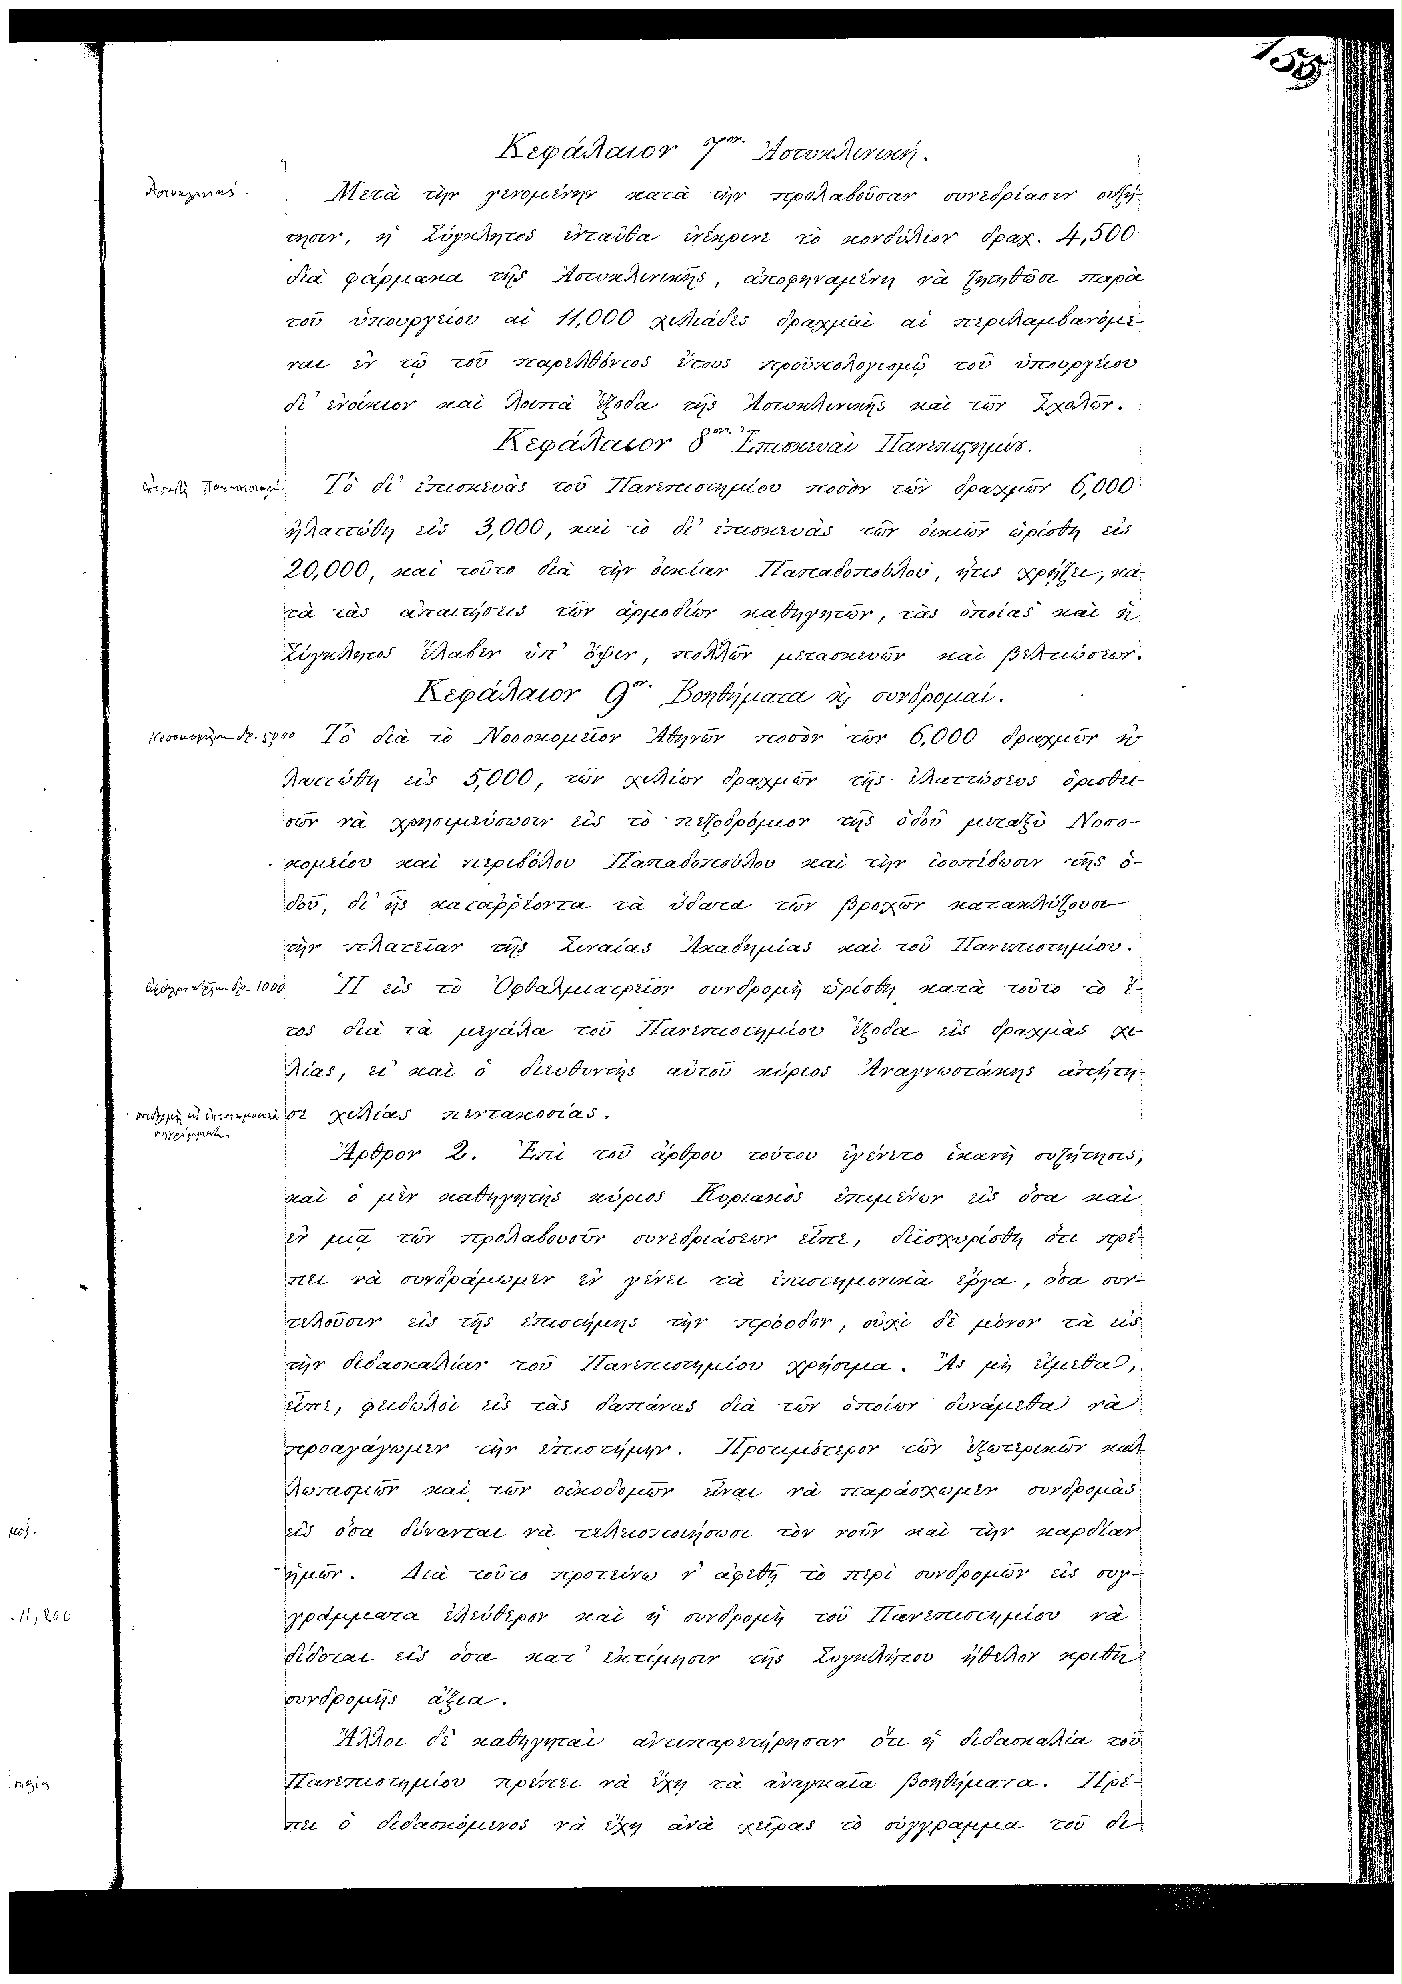 155
Κεφάλαιον 7ον. Ἀστυκλινική.
Ἀστυκλινική.
Μετὰ τὴν γενομένην κατὰ τὴν προλαβοῦσαν συνεδρίασιν συζή-
τησιν, ἡ Σύγκλητος ἐνταῦθα ἐνέκρινε τὸ κονδύλιον δραχ. 4,500
διὰ φάρμακα τῆς Ἀστυκλινικῆς, ἀποφηναμένη νὰ ζητηθῶσι παρὰ
τοῦ ὑπουργείου αἱ 11,000 χιλιάδες δραχμαὶ αἱ περιλαμβανόμε-
ναι ἐν τῷ τοῦ παρελθόντος ἔτους προϋπολογισμῷ τοῦ ὑπουργείου
δι' ἐνοίκιον καὶ λοιπὰ ἔξοδα τῆς Ἀστυκλινικῆς καὶ τῶν Σχολῶν.
Κεφάλαιον 8ον. Ἐπισκευαὶ Πανεπιστημίου.
Τὸ δι' ἐπισκευὰς τοῦ Πανεπιστημίου ποσὸν τῶν δραχμῶν 6,000
ἠλαττώθη εἰς 3,000, καὶ τὸ δι' ἐπισκευὰς τῶν οἰκιῶν ὡρίσθη εἰς
20,000, καὶ τοῦτο διὰ τὴν οἰκίαν Παπαδοπούλου, ἥτις χρῄζει, κα-
τὰ τὰς ἀπαιτήσεις τῶν ἁρμοδίων καθηγητῶν, τὰς ὁποίας καὶ ἡ
Σύγκλητος ἔλαβεν ὑπ' ὄψιν, πολλῶν μετασκευῶν καὶ βελτιώσεων.
Κεφάλαιον 9ον. Βοηθήματα κ̀ συνδρομαί.
Νοσοκομεῖον δρ. 5000
Τὸ διὰ τὸ Νοσοκομεῖον Ἀθηνῶν ποσὸν τῶν 6,000 δραχμῶν ἠ-
λαττώθη εἰς 5,000, τῶν χιλίων δραχμῶν τῆς ἐλαττώσεως ὁρισθει-
σῶν νὰ χρησιμεύσωσιν εἰς τὸ πεζοδρόμιον τῆς ὁδοῦ μεταξὺ Νοσο-
κομείου καὶ περιβόλου Παπαδοπούλου καὶ τὴν ἰσοπέδωσιν τῆς ὁ-
δοῦ, δι' ἧς καταῤῥέοντα τὰ ὕδατα τῶν βροχῶν κατακλύζουσι
τὴν πλατεῖαν τῆς Σιναίας Ἀκαδημίας καὶ τοῦ Πανεπιστημίου.
Ἡ εἰς τὸ Ὀφθαλμιατρεῖον συνδρομὴ ὡρίσθη κατὰ τοῦτο τὸ ἔ-
τος διὰ τὰ μεγάλα τοῦ Πανεπιστημίου ἔξοδα εἰς δραχμὰς χι-
λίας, εἰ καὶ ὁ διευθυντὴς αὐτοῦ κύριος Ἀναγνωστάκης ἀπῄτη-
σε χιλίας πεντακοσίας.
Ἄρθρον 2. Ἐπὶ τοῦ ἄρθρου τούτου ἐγένετο ἱκανὴ συζήτησις,
καὶ ὁ μὲν καθηγητὴς κύριος Κυριακὸς ἐπιμένων εἰς ὅσα καὶ
ἐν μιᾷ τῶν προλαβουσῶν συνεδριάσεων εἶπε, διϊσχυρίσθη ὅτι πρέ-
πει νὰ συνδράμωμεν ἐν γένει τὰ ἐπιστημονικὰ ἔργα, ὅσα συν-
τελοῦσιν εἰς τῆς ἐπιστήμης τὴν πρόοδον, οὐχὶ δὲ μόνον τὰ εἰς
τὴν διδασκαλίαν τοῦ Πανεπιστημίου χρήσιμα. Ἂς μὴ εἴμεθα,
εἶπε, φειδωλοὶ εἰς τὰς δαπάνας διὰ τῶν ὁποίων δυνάμεθα νὰ
προαγάγωμεν τὴν ἐπιστήμην. Προτιμότερον τῶν ἐξωτερικῶν καλ-
λωπισμῶν καὶ τῶν οἰκοδομῶν εἶναι νὰ παράσχωμεν συνδρομὰς
εἰς ὅσα δύνανται νὰ τελειοποιήσωσι τὸν νοῦν καὶ τὴν καρδίαν
ἡμῶν. Διὰ τοῦτο προτείνω ν' ἀφεθῇ τὸ περὶ συνδρομῶν εἰς συγ-
γράμματα ἐλεύθερον καὶ ἡ συνδρομὴ τοῦ Πανεπιστημίου νὰ
δίδοται εἰς ὅσα κατ' ἐκτίμησιν τῆς Συγκλήτου ἤθελον κριθῆ
συνδρομῆς ἄξια.
Ἄλλοι δὲ καθηγηταὶ ἀντιπαρετήρησαν ὅτι ἡ διδασκαλία τοῦ
Πανεπιστημίου πρέπει νὰ ἔχῃ τὰ ἀναγκαῖα βοηθήματα. Πρέ-
πει ὁ διδασκόμενος νὰ ἔχῃ ἀνὰ χεῖρας τὸ σύγγραμμα τοῦ δι-